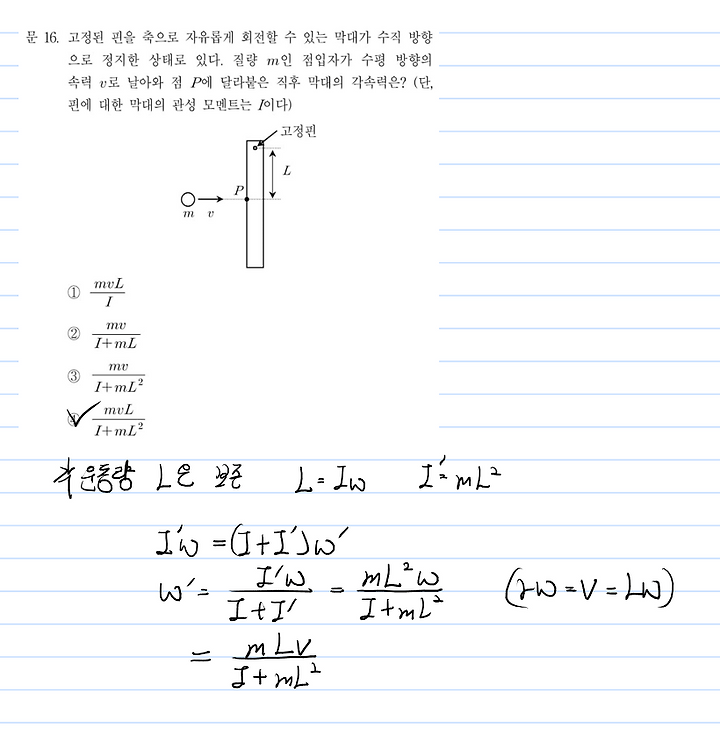 문 16. 고정된 핀을 축으로 자유롭게 회전할 수 있는 막대가 수직 방향
으로 정지한 상태로 있다. 질량 m인 점입자가 수평 방향의
속력 v로 날아와 점 P에 달라붙은 직후 막대의 각속력은? (단,
핀에 대한 막대의 관성 모멘트는 I이다)
고정핀
L
P
m v
① mvL/I
② mv/(I+mL)
③ mv/(I+mL²)
④ mvL/(I+mL²)
각운동량 L은 보존 L=Iω I'=mL²
I'ω=(I+I')ω'
ω'= I'ω/(I+I') = mL²ω/(I+mL²) (rω=v=Lω)
= mLv/(I+mL²)